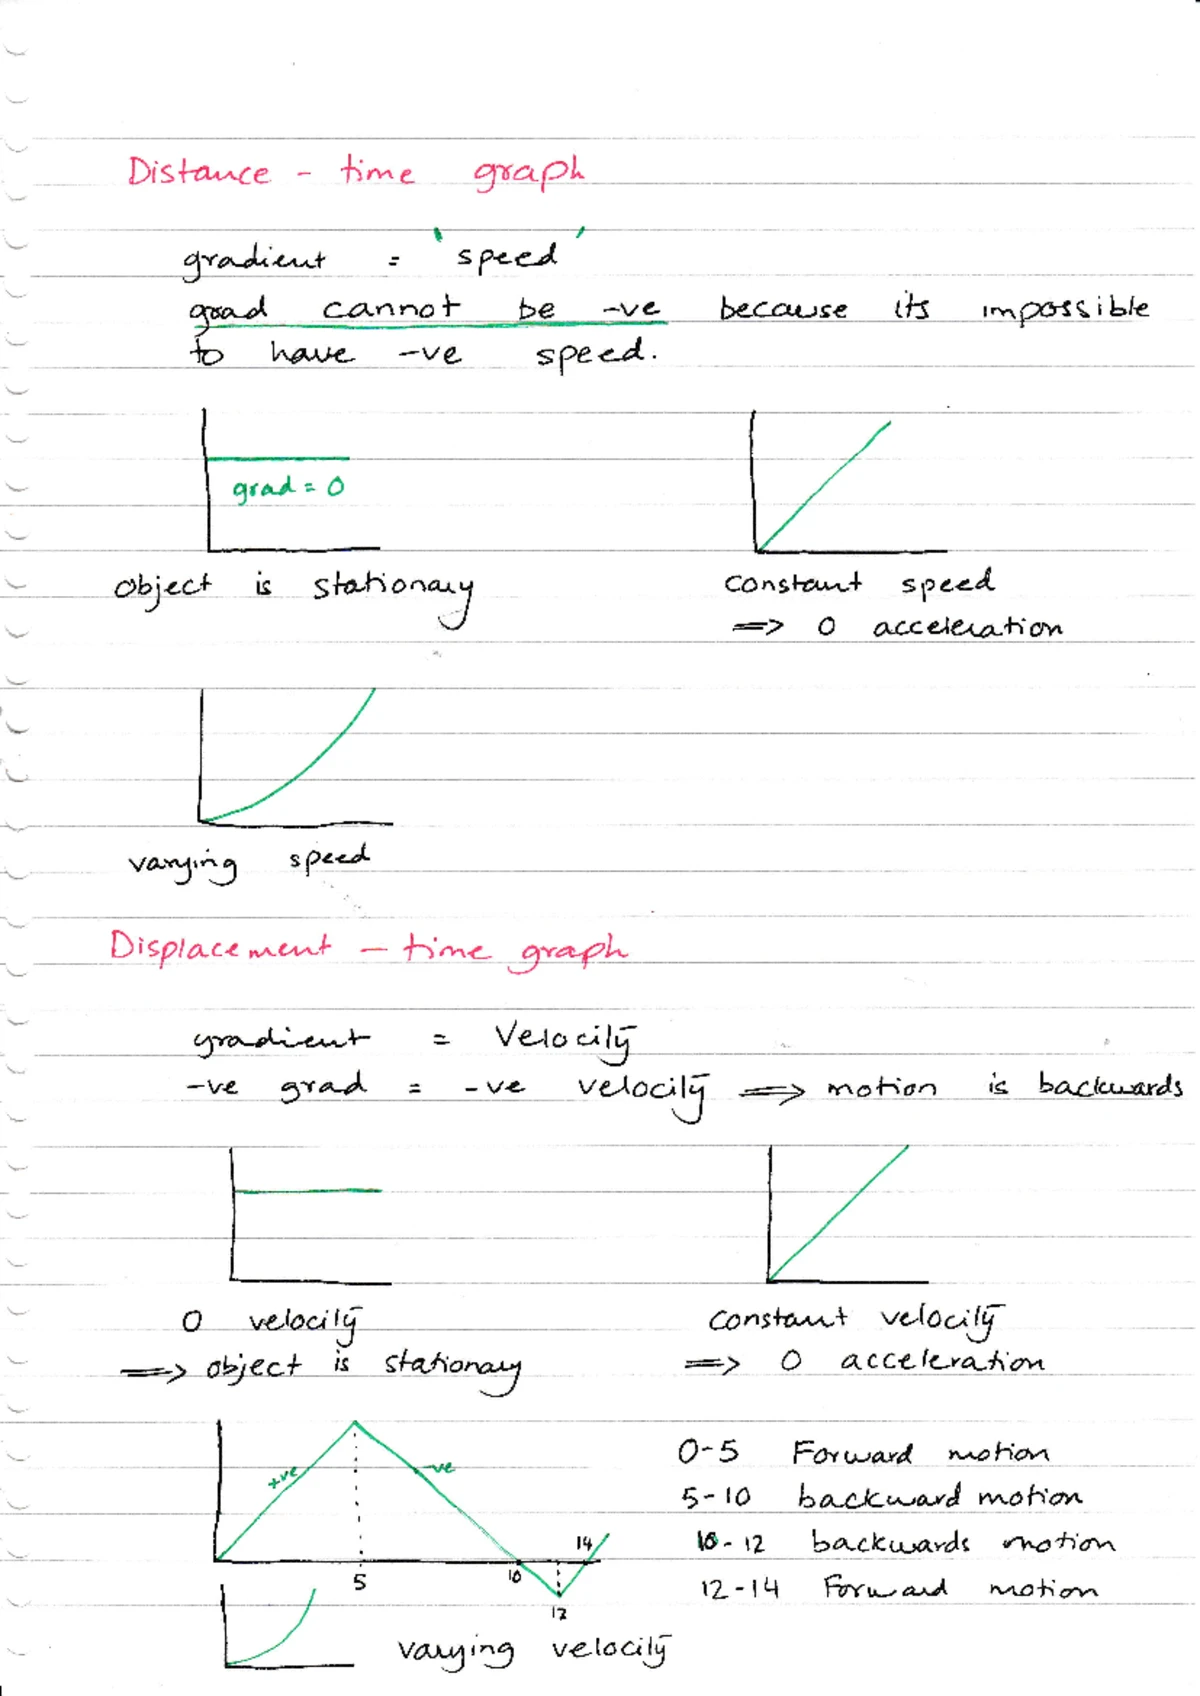 Distance - time graph
gradient = 'speed'
grad cannot be -ve because its impossible
to have -ve speed.
grad = 0
object is stationary
constant speed
=> 0 acceleration
varying speed
Displacement - time graph
gradient = Velocity
-ve grad = -ve velocity => motion is backwards
0 velocity
=> object is stationary
constant velocity
=> 0 acceleration
+ve
-ve
5
10
12
14
0-5 Forward motion
5-10 backward motion
10-12 backwards motion
12-14 Forward motion
varying velocity